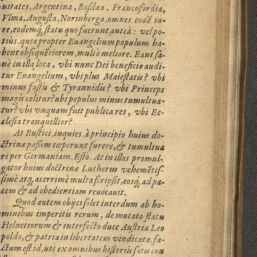 uitates, Argentina, Basilea, Francofordia,
Vlma, Augusta, Norinberga, omnes eodē iu-
re, eodemq́; statu quo fuerunt antea: vel po-
tius, quia propter Euangelium populum ha-
bent obsequētiorem, multò meliore. Eant sa-
nè in illa loca, vbi nunc Dei beneficio audi-
tur Euangelium, vbi plus Maiestatis? vbi
minus fastu & Tyrannidis? vbi Princeps
magis colitur? ubi populus minus tumultua-
tur? vbi vnquam fuit publica res, vbi Ec-
clesia tranquillior?
At Rustici, inquies, à principio huius do-
ctrinæ pessim cœperunt furere, & tumultua
ri per Germaniam. Esto. At in illos promul-
gator huius doctrinæ Lutherus vehemētis-
simè atq́; acerrimè multa scripsit, eosq́; ad pa-
cem & ad obedientiam reuocauit.
Quod autem obijci solet interdum ab ho-
minibus imperitis rerum, de mutato statu
Heluetiorum & interfecto duce Austriæ Leo
poldo, & patria in libertatem vindicata, fa-
ctum est id, uti ex omnibus historiis satis con